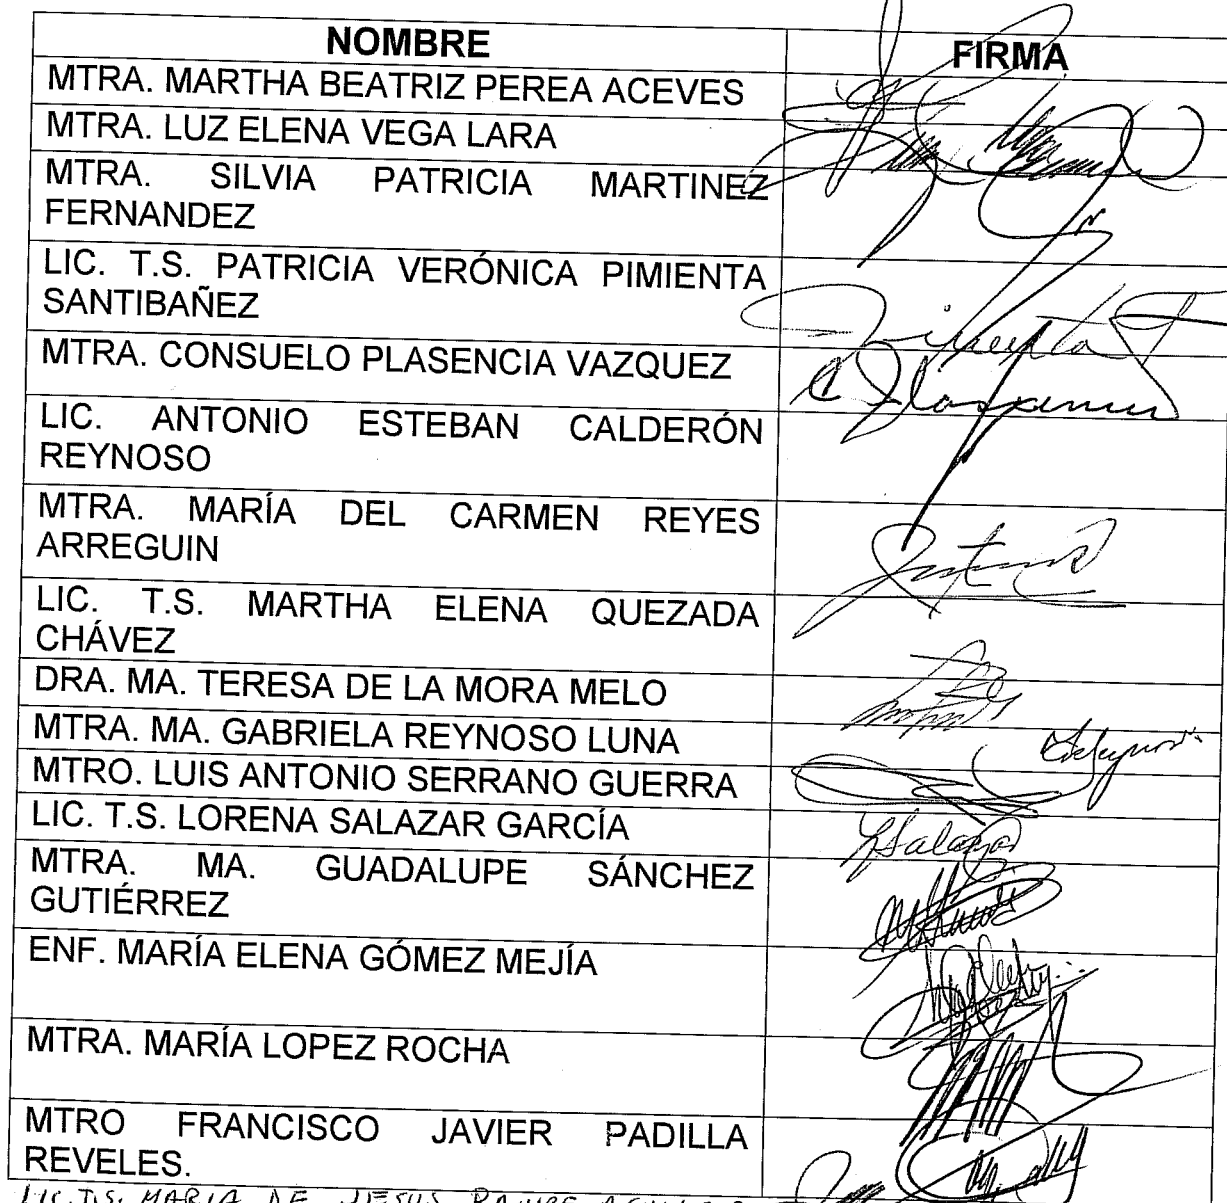 NOMBRE FIRMA
MTRA. MARTHA BEATRIZ PEREA ACEVES
MTRA. LUZ ELENA VEGA LARA
MTRA. SILVIA PATRICIA MARTINEZ
FERNANDEZ
LIC. T.S. PATRICIA VERÓNICA PIMIENTA
SANTIBAÑEZ
MTRA. CONSUELO PLASENCIA VAZQUEZ
LIC. ANTONIO ESTEBAN CALDERÓN
REYNOSO
MTRA. MARÍA DEL CARMEN REYES
ARREGUIN
LIC. T.S. MARTHA ELENA QUEZADA
CHÁVEZ
DRA. MA. TERESA DE LA MORA MELO
MTRA. MA. GABRIELA REYNOSO LUNA
MTRO. LUIS ANTONIO SERRANO GUERRA
LIC. T.S. LORENA SALAZAR GARCÍA
LSalazar
MTRA. MA. GUADALUPE SÁNCHEZ
GUTIÉRREZ
ENF. MARÍA ELENA GÓMEZ MEJÍA
MTRA. MARÍA LOPEZ ROCHA
MTRO FRANCISCO JAVIER PADILLA
REVELES.
LIC. T.S. MARIA DE JESUS